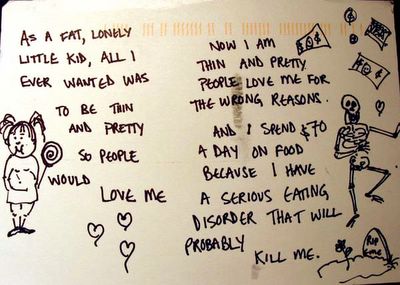 AS A FAT, LONELY
LITTLE KID, ALL I
EVER WANTED WAS
TO BE THIN
AND PRETTY
SO PEOPLE
WOULD
LOVE ME
NOW I AM
THIN AND PRETTY
PEOPLE LOVE ME FOR
THE WRONG REASONS.
AND I SPEND $70
A DAY ON FOOD
BECAUSE I HAVE
A SERIOUS EATING
DISORDER THAT WILL
PROBABLY
KILL ME.
$
$0$
$0$
RIP